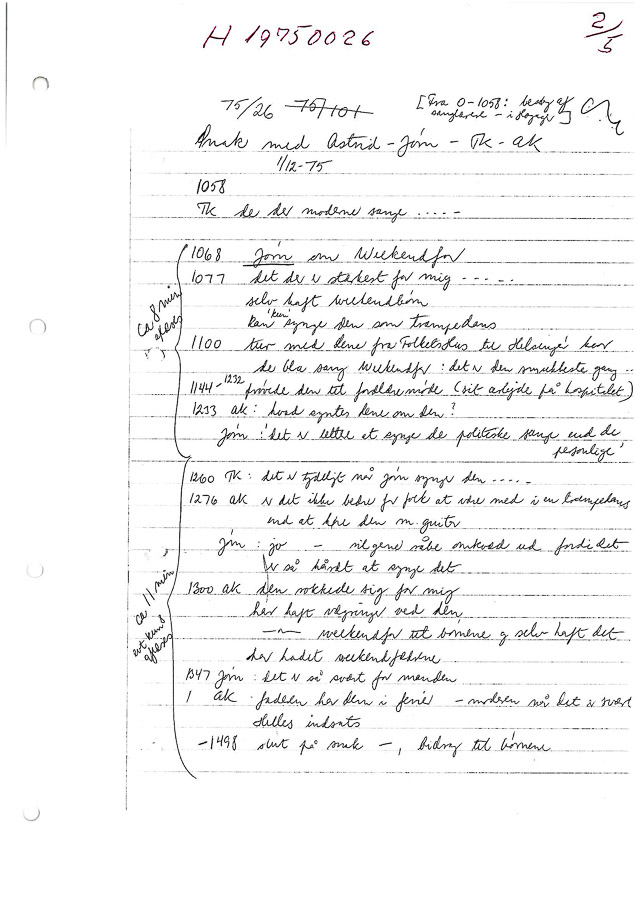 H 19750026
2/5
75/26 75/101
[Fra 0-1058:
Snak med Astrid - Jørn - TK - AK
1/12-75
1058
TK de der moderne sange .....
1068 Jørn om Weekendfar
1077 det der er stærkest for mig .....
selv haft weekendbørn
kan 'kun' synge den som trampedans
1100 tur med dene fra Folkets Hus til Helsingør hvor
de bla sang Weekendfar : det er den smukkeste gang ..
1144-1232 prøvede den til forældremøde (sit arbejde på hospitalet)
1233 AK : hvad syntes dene om den ?
Jørn : 'det er lettere at synge de politiske sange end de
personlige'
ca 8 min
afleses
1260 TK : det er tydeligt når Jørn synger den .....
1276 AK er det ikke bedre for folk at være med i en trampedans
end at høre den m. guitar
Jørn : jo - vil gerne råbe omkvæd ud fordi det
er så hårdt at synge det
1300 AK den rokkede sig for mig
har haft vægringer ved den
weekendfar til børnene og selv haft det
har hadet weekendfædrene
1347 Jørn : det er så svært for manden
AK : faderen har dem i ferie - moderen når det er svært
Helles indsats
-1498 slut på snak -, bidrag til børnene
ca 11 min
evt kun 8
afleses